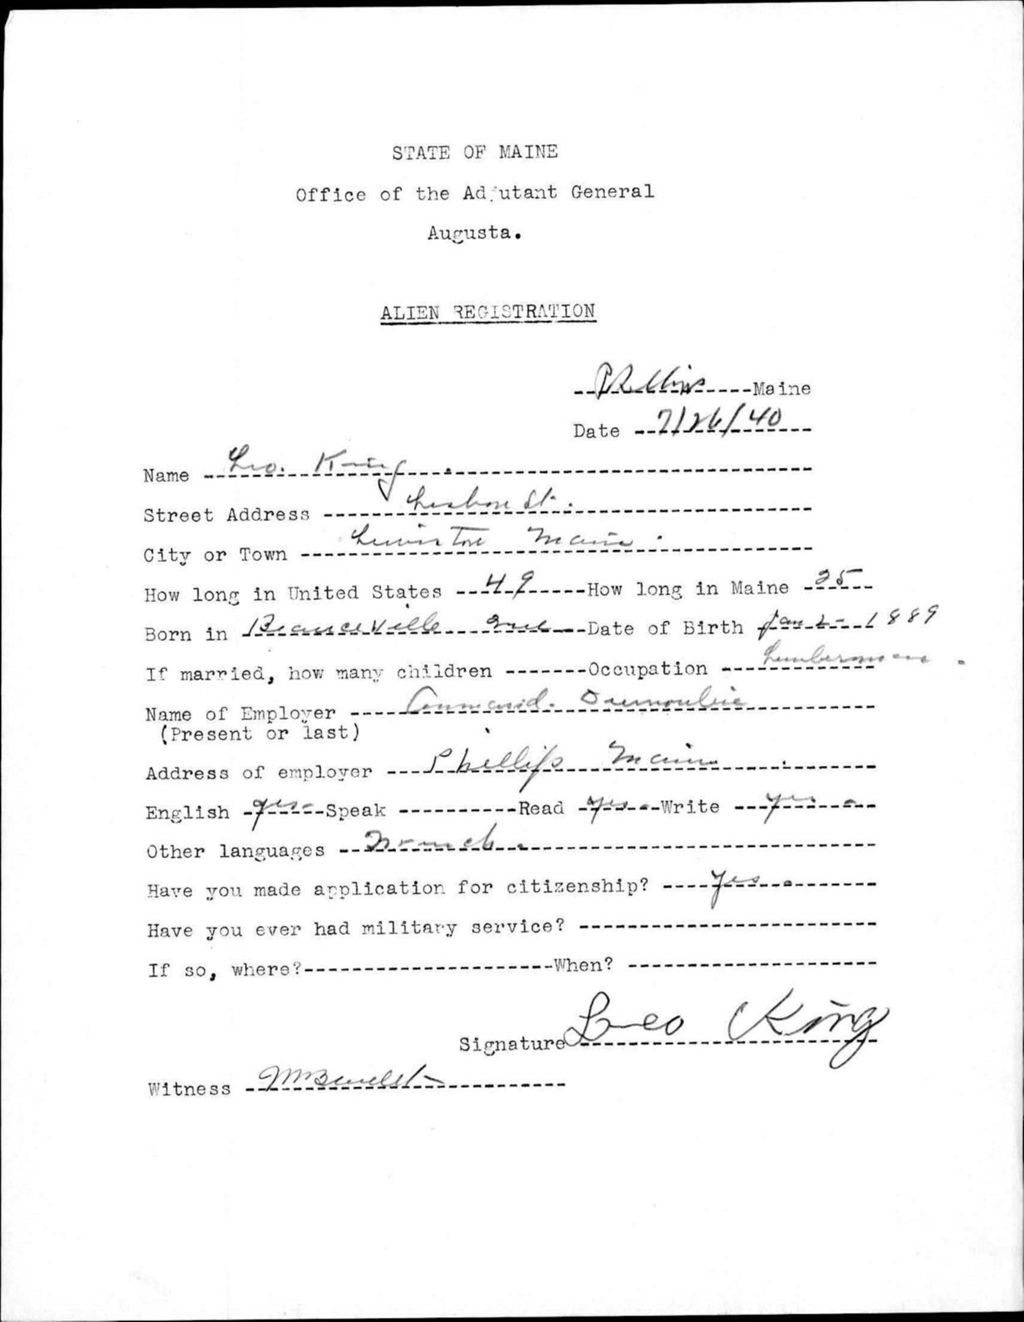 STATE OF MAINE
Office of the Adjutant General
Augusta.
ALIEN REGISTRATION
Phillips Maine
Date 7/26/40
Name Leo. King.
Street Address Lisbon St.
City or Town Lewiston Maine.
How long in United States 49 How long in Maine 25
Born in Beauceville Que Date of Birth Jan 2 - 1889
If married, how many children Occupation Lumberman.
Name of Employer
(Present or last)
Address of employer Phillips Maine
English yes Speak Read yes Write yes
Other languages French.
Have you made application for citizenship? Yes.
Have you ever had military service?
If so, where? When?
Signature Leo King
Witness